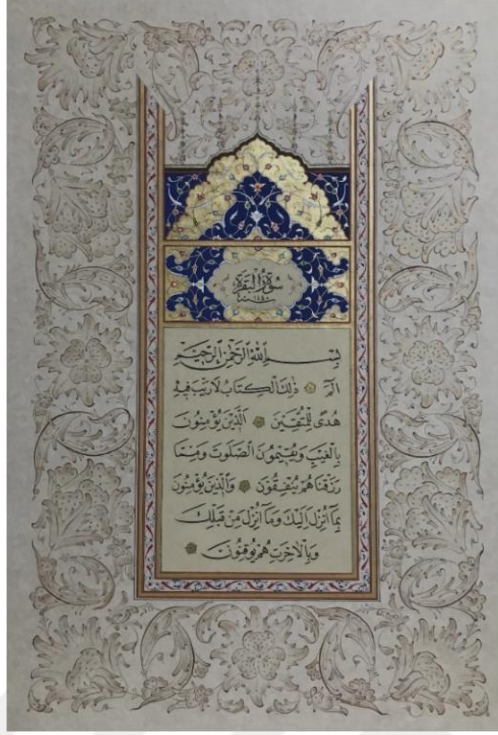 سورة البقرة
بسم الله الرحمن الرحيم
الٓمٓ ۞ ذٰلِكَ الْكِتَابُ لَا رَيْبَ فِيهِ
هُدًى لِلْمُتَّقِينَ ۞ اَلَّذِينَ يُؤْمِنُونَ
بِالْغَيْبِ وَيُقِيمُونَ الصَّلٰوتَ وَمِمَّا
رَزَقْنَاهُمْ يُنْفِقُونَ ۞ وَالَّذِينَ يُؤْمِنُونَ
بِمَا اُنْزِلَ اِلَيْكَ وَمَا اُنْزِلَ مِنْ قَبْلِكَ
وَبِالْاٰخِرَتِ هُمْ يُوقِنُونَ ۞